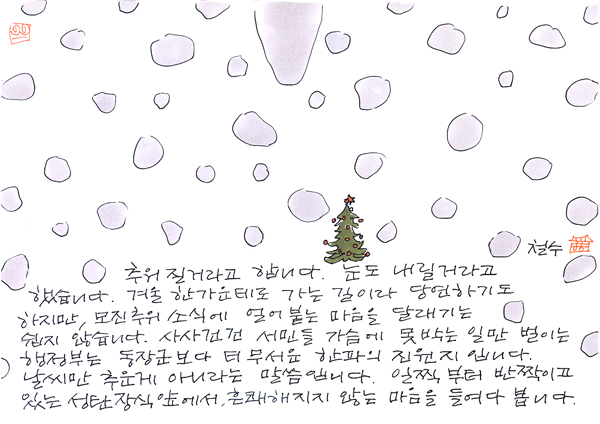 철수
추워 질거라고 합니다. 눈도 내릴거라고
했습니다. 겨울 한가운데로 가는 길이라 당연하기도
하지만, 모진추위 소식에 얼어붙는 마음을 달래기는
쉽지 않습니다. 사사건건 서민들 가슴에 못박는 일만 벌이는
행정부는 동장군보다 더 무서운 한파의 진원지 입니다.
날씨만 추운게 아니라는 말씀입니다. 일찍부터 반짝이고
있는 성탄장식앞에서, 흔쾌해지지 않는 마음을 들여다 봅니다.